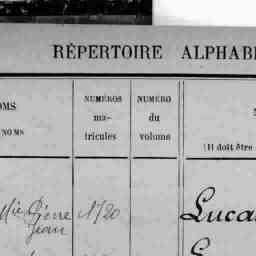 RÉPERTOIRE ALPHAB
OMS
NOMS
NUMÉROS
ma-
tricules
NUMÉRO
du
volume
(Il doit être
Pierre 1720
Jean
Luca